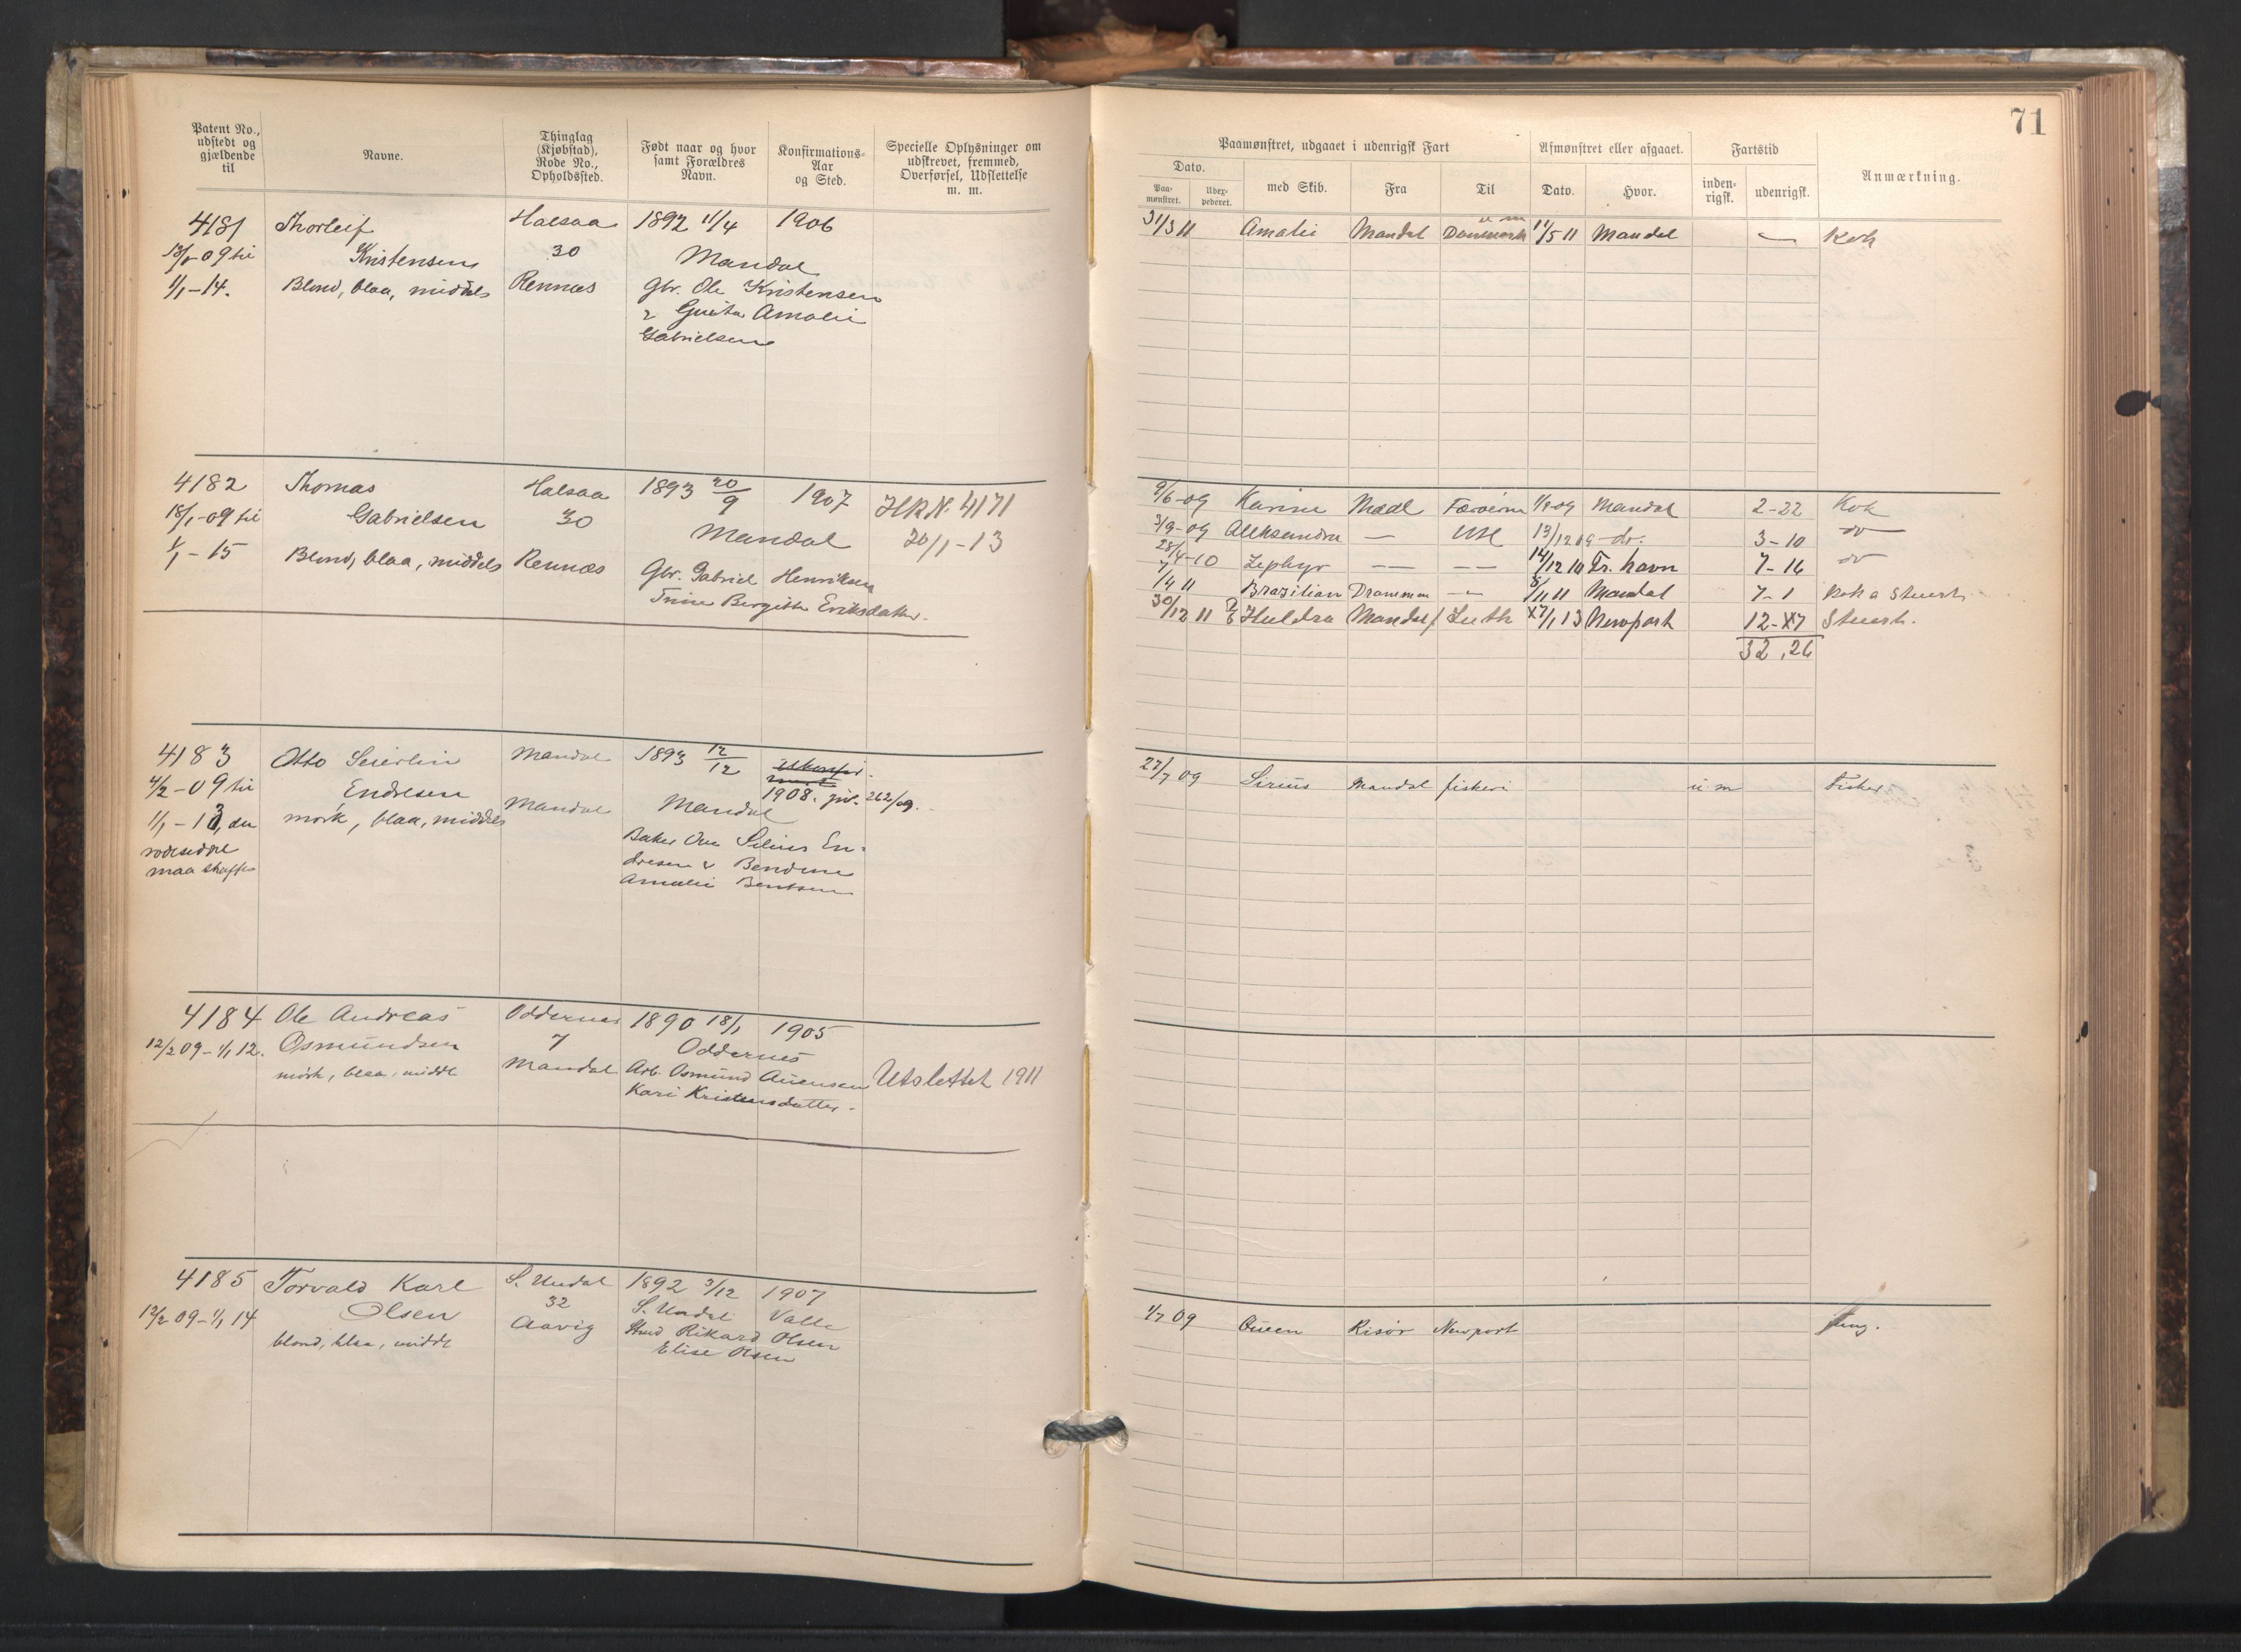 71
Patent No., udstedt og gjældende til
Navne.
Thinglag (Kjøbstad), Rode No., Opholdssted.
Født naar og hvor samt Forældres Navn.
Konfirmations-Aar og Sted.
Specielle Oplysninger om udskrevet, fremmed, Overførsel, Udslettelse m. m.
Paamønstret, udgaaet i udenrigsk Fart
Afmønstret eller afgaaet.
Fartstid
Anmærkning.
Dato.
Paa-mønstret.
Uder-pederet.
med Skib.
Fra
Til
Dato.
Hvor.
inden-rigsk.
udenrigsk.
4181 Thorleif Halsaa 1892 11/4 1906
18/1-09 til Kristensen 30 Mandal
1/1-14. Blond, blaa, middels Rennæs Gbr. Ole Kristensen
& Gusta Amalie
Gabrielsen
31/3 11 Amalie Mandal Danmark u m 14/5 11 Mandal — Kok
4182 Thomas Halsaa 1893 20/9 1907 HR N. 4171
18/1-09 til Gabrielsen 30 Mandal 20/1-13
1/1-15 Blond, blaa, middels Rennæs Gbr. Gabriel Henriksen
Trine Bergitte Eriksdatter.
9/6-09 Karine Madl Færøerne 1/9 09 Mandal 2-22 Kok
3/9-09 Aleksandra — Utl 13/12 09 - do. 3-10 do
28/4-10 Zephyr — — 14/12 10 Fr. havn 7-16 do
7/4 11 Brazilian Drammen — 8/11 11 Mandal 7-1 Kok & Stuert
30/12 11 Huldra Mandal Leith 27/1 13 Newport 12-27 Stuert.
32,26
4183 Otto Seierlin Mandal 1893 12/12
4/2-09 til Endresen Mandal Mandal 1908. jvr. 262/09.
1/1-13, en mørk, blaa, middels
rodeseddel Baker Ove Silius En-
maa skaffes dresen & Bendine
Amalie Bentsen
27/7 09 Sirius Mandal fiskeri u m Fisker
4184 Ole Andreas Oddernes 1890 18/1 1905
12/2 09-1/1 12. Osmundsen 7 Oddernes
mørk, blaa, middl Mandal Arb. Osmund Auensen Utslettet 1911
Kari Kristensdatter.
4185 Torvald Karl S. Undal 1892 3/12 1907
12/2 09-1/1 14 Olsen 32 S. Undal Valle
blond, blaa, middl Aavig Rikard Olsen
Elise Olsen
1/7 09 Queen Risør Newport Jung.